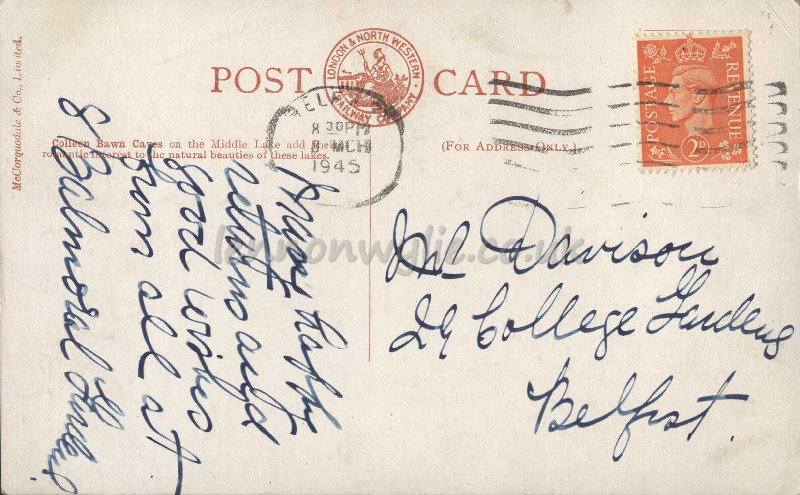 McCorquodale & Co., Limited.
POST CARD
LONDON & NORTH WESTERN
RAILWAY COMPANY
Colleen Bawn Caves on the Middle Lake add
romantic interest to the natural beauties of these lakes.
(FOR ADDRESS ONLY.)
8 30PM
8 MCH
1945
POSTAGE
REVENUE
2D
Many happy
returns and
good wishes
from all at
8 Balmoral Gardens
Davison
29 College Gardens
Belfast.
lennonwylie.co.uk